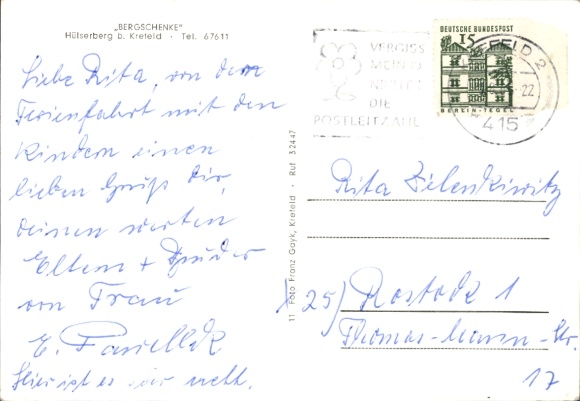 „BERGSCHENKE"
Hülserberg b. Krefeld · Tel. 67611
Liebe Rita, von dem
Ferienfahrt mit den
Kindern einen
lieben Gruß Dir,
deinen werten
Eltern + Bruder
von Frau
E.
Hier ist es sehr nett.
11 Foto Franz Gayk, Krefeld · Ruf 52447
VERGISS
MEIN
NICHT
DIE
POSTLEITZAHL
DEUTSCHE BUNDESPOST
15
BERLIN-TEGEL
KREFELD 2
22
415
Rita Zilenkiwitz
25) Rostock 1
Thomas-Mann-Str.
17